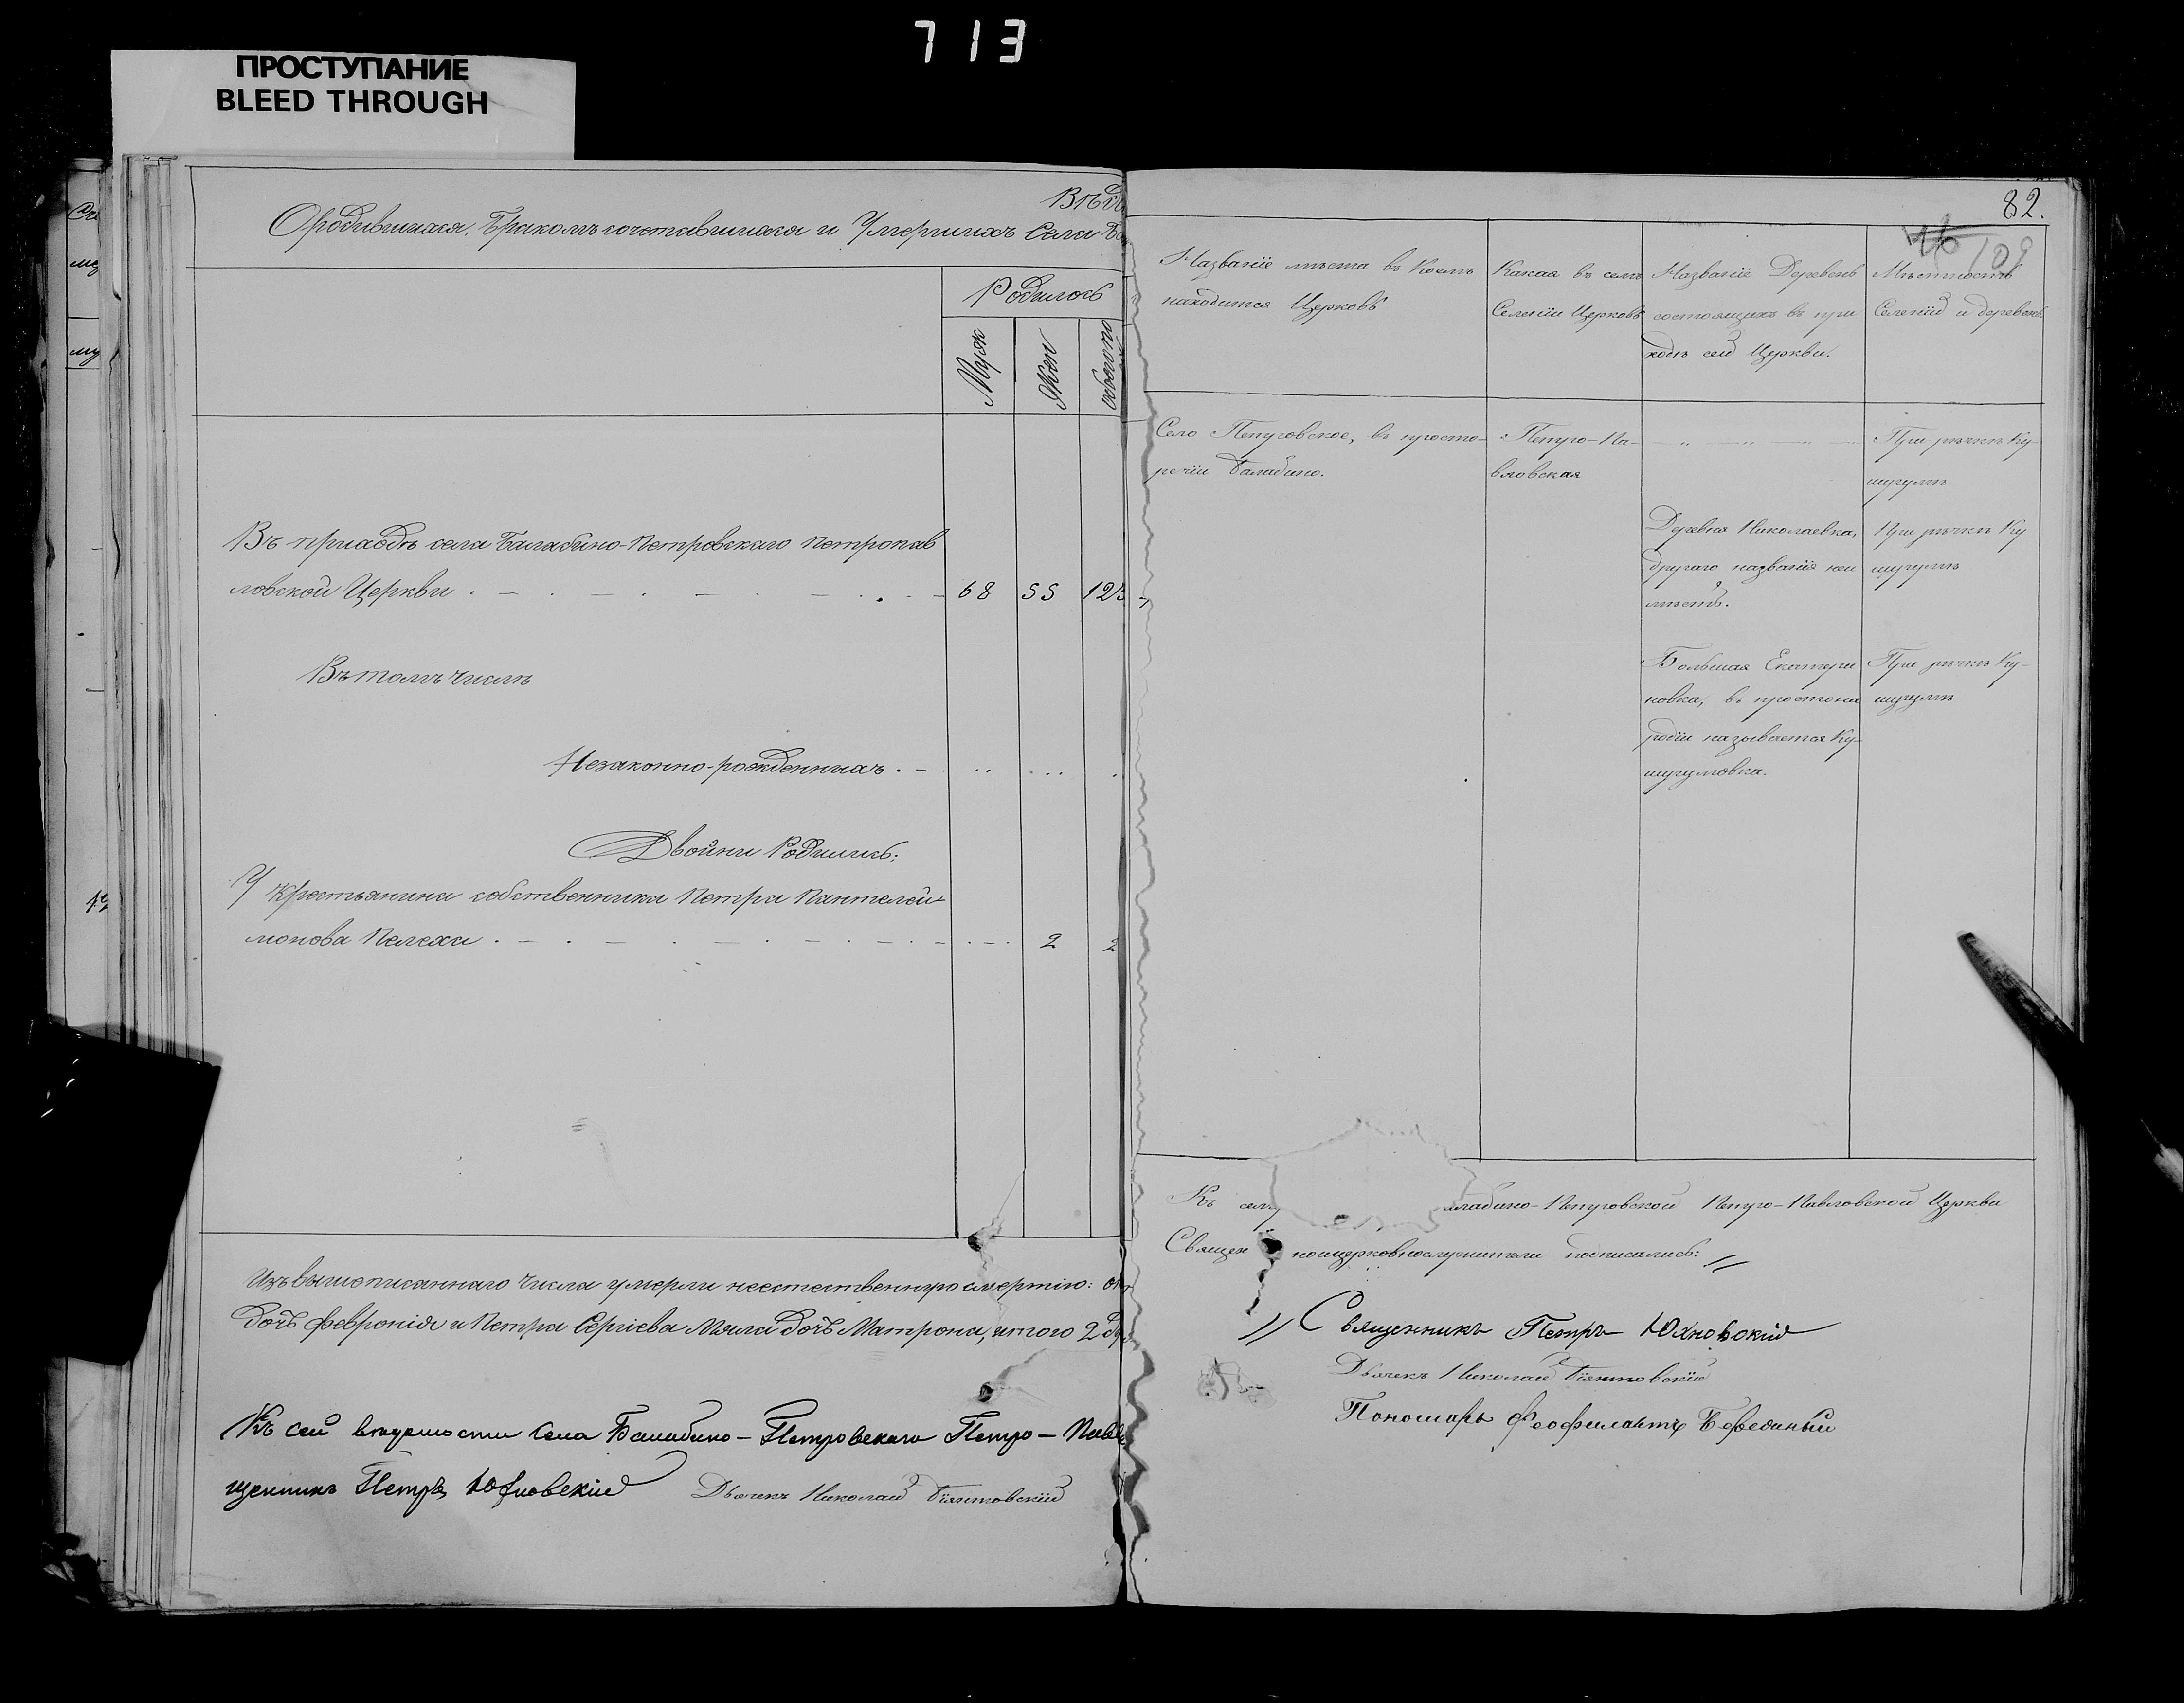 713
ПРОСТУПАНИЕ
BLEED THROUGH
Вѣдо
О родившихся, Бракомъ сочетавшихся и Умершихъ Села Ба
Родилось
Муж
Жен
обоего по
Въ приходѣ села Балабино-Петровскаго Петропав
ловской Церкви
68 55 123
Въ томъ числѣ
Незаконно-рожденныхъ
Двойни Родились:
У крестьянина собственника Петра Пантелей-
монова Пелеха
2 2
Изъ вышеписаннаго числа умерли неестественною смертію:
дочь Февронія и Петра Сергіева Мяла дочь Матрона, итого 2 ду
Къ сей вѣдомости Села Балабино-Петровскаго Петро-Павл
щенникъ Петръ Юхновскій Дьячекъ Николай
82.
109
Названіе мѣста въ коемъ
находится Церковь
Какая въ семъ
Селеніи Церковь
Названіе Деревень
состоящихъ въ при
ходѣ сей Церкви.
Мѣстность
Селеній и деревень.
Село Петровское, въ просто-
рѣчіи Балабино.
Петро-Па-
вловская
При рѣчкѣ Ку-
шугумѣ
Деревня Николаевка,
другаго названія неи
мѣетъ.
При рѣчкѣ Ку
шугумѣ
Большая Екатери
новка, въ простона
родіи называется Ку-
шугумовка.
При рѣчкѣ Ку-
шугумѣ
Къ сем лабино-Петровской Петро-Павловской Церкви
Священ ноцерковнослужители подписались:
Священникъ Петръ Юхновскій
Дьячекъ Николай
Пономарь Феофилактъ